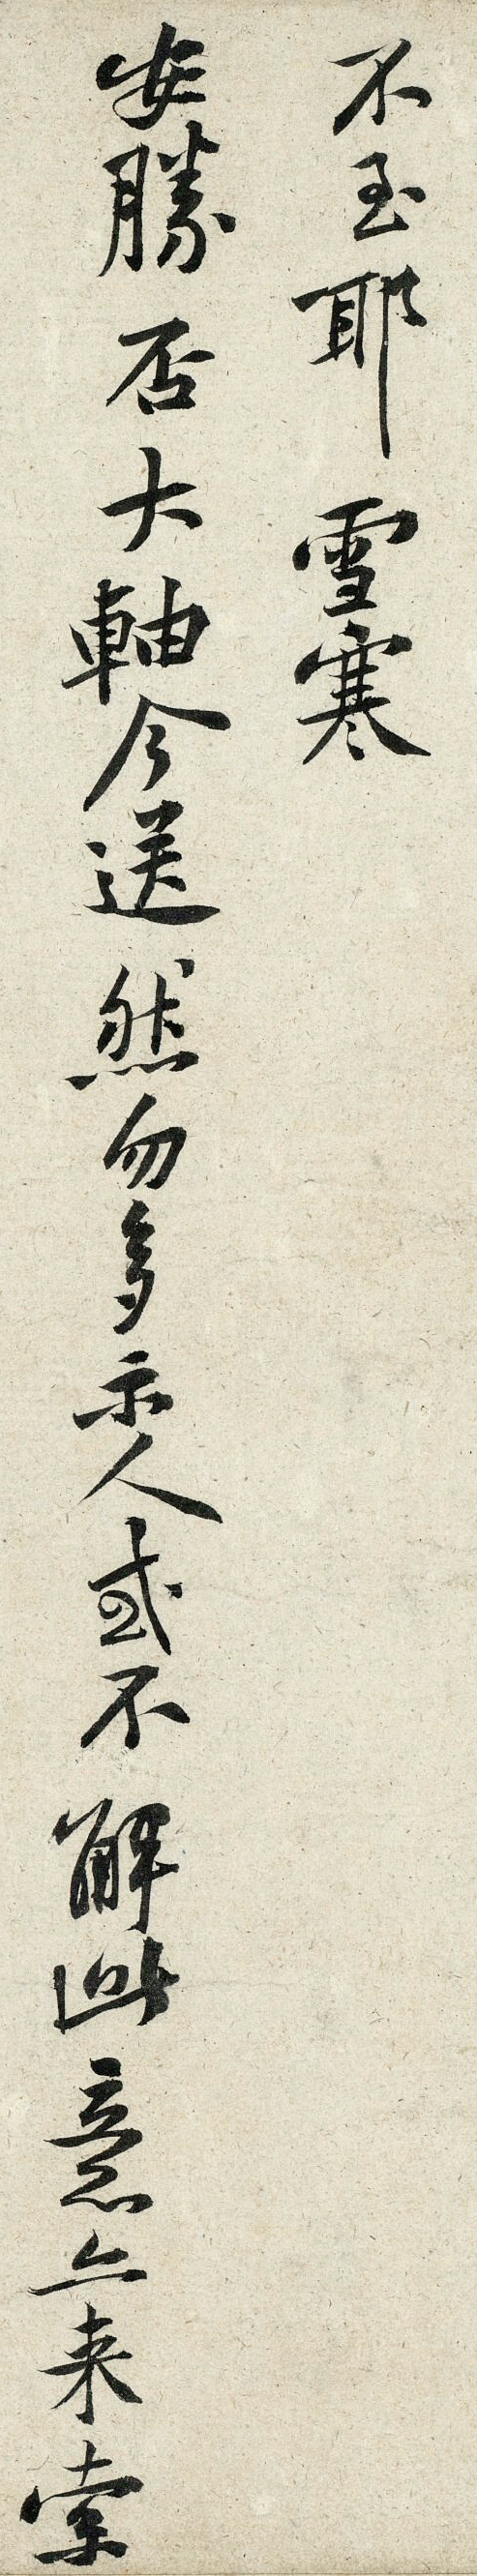 不至耶雪寒
安勝否大軸今送然勿多示人或不解此意亦来索